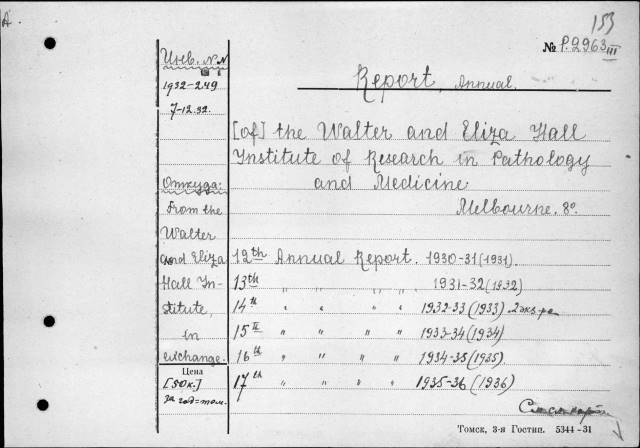 A.
153
№ P.2963 III
Инв. №№
1932-249
7-12.32.
Откуда:
From the
Walter
and Eliza
Hall In-
stitute,
in
exchange.
Цена
[50к.]
за год=том.
Report, Annual.
[of] the Walter and Eliza Hall
Institute of Research in Pathology
and Medicine.
Melbourne. 8º.
12th Annual Report. 1930-31 (1931).
13th " " 1931-32 (1932)
14th " " 1932-33 (1933) 2 экз.
15th " " " 1933-34 (1934)
16th " " " 1934-35 (1935).
17th " " " 1935-36 (1936)
См. след. карт.
Томск, 3-я Гостип. 5344-31